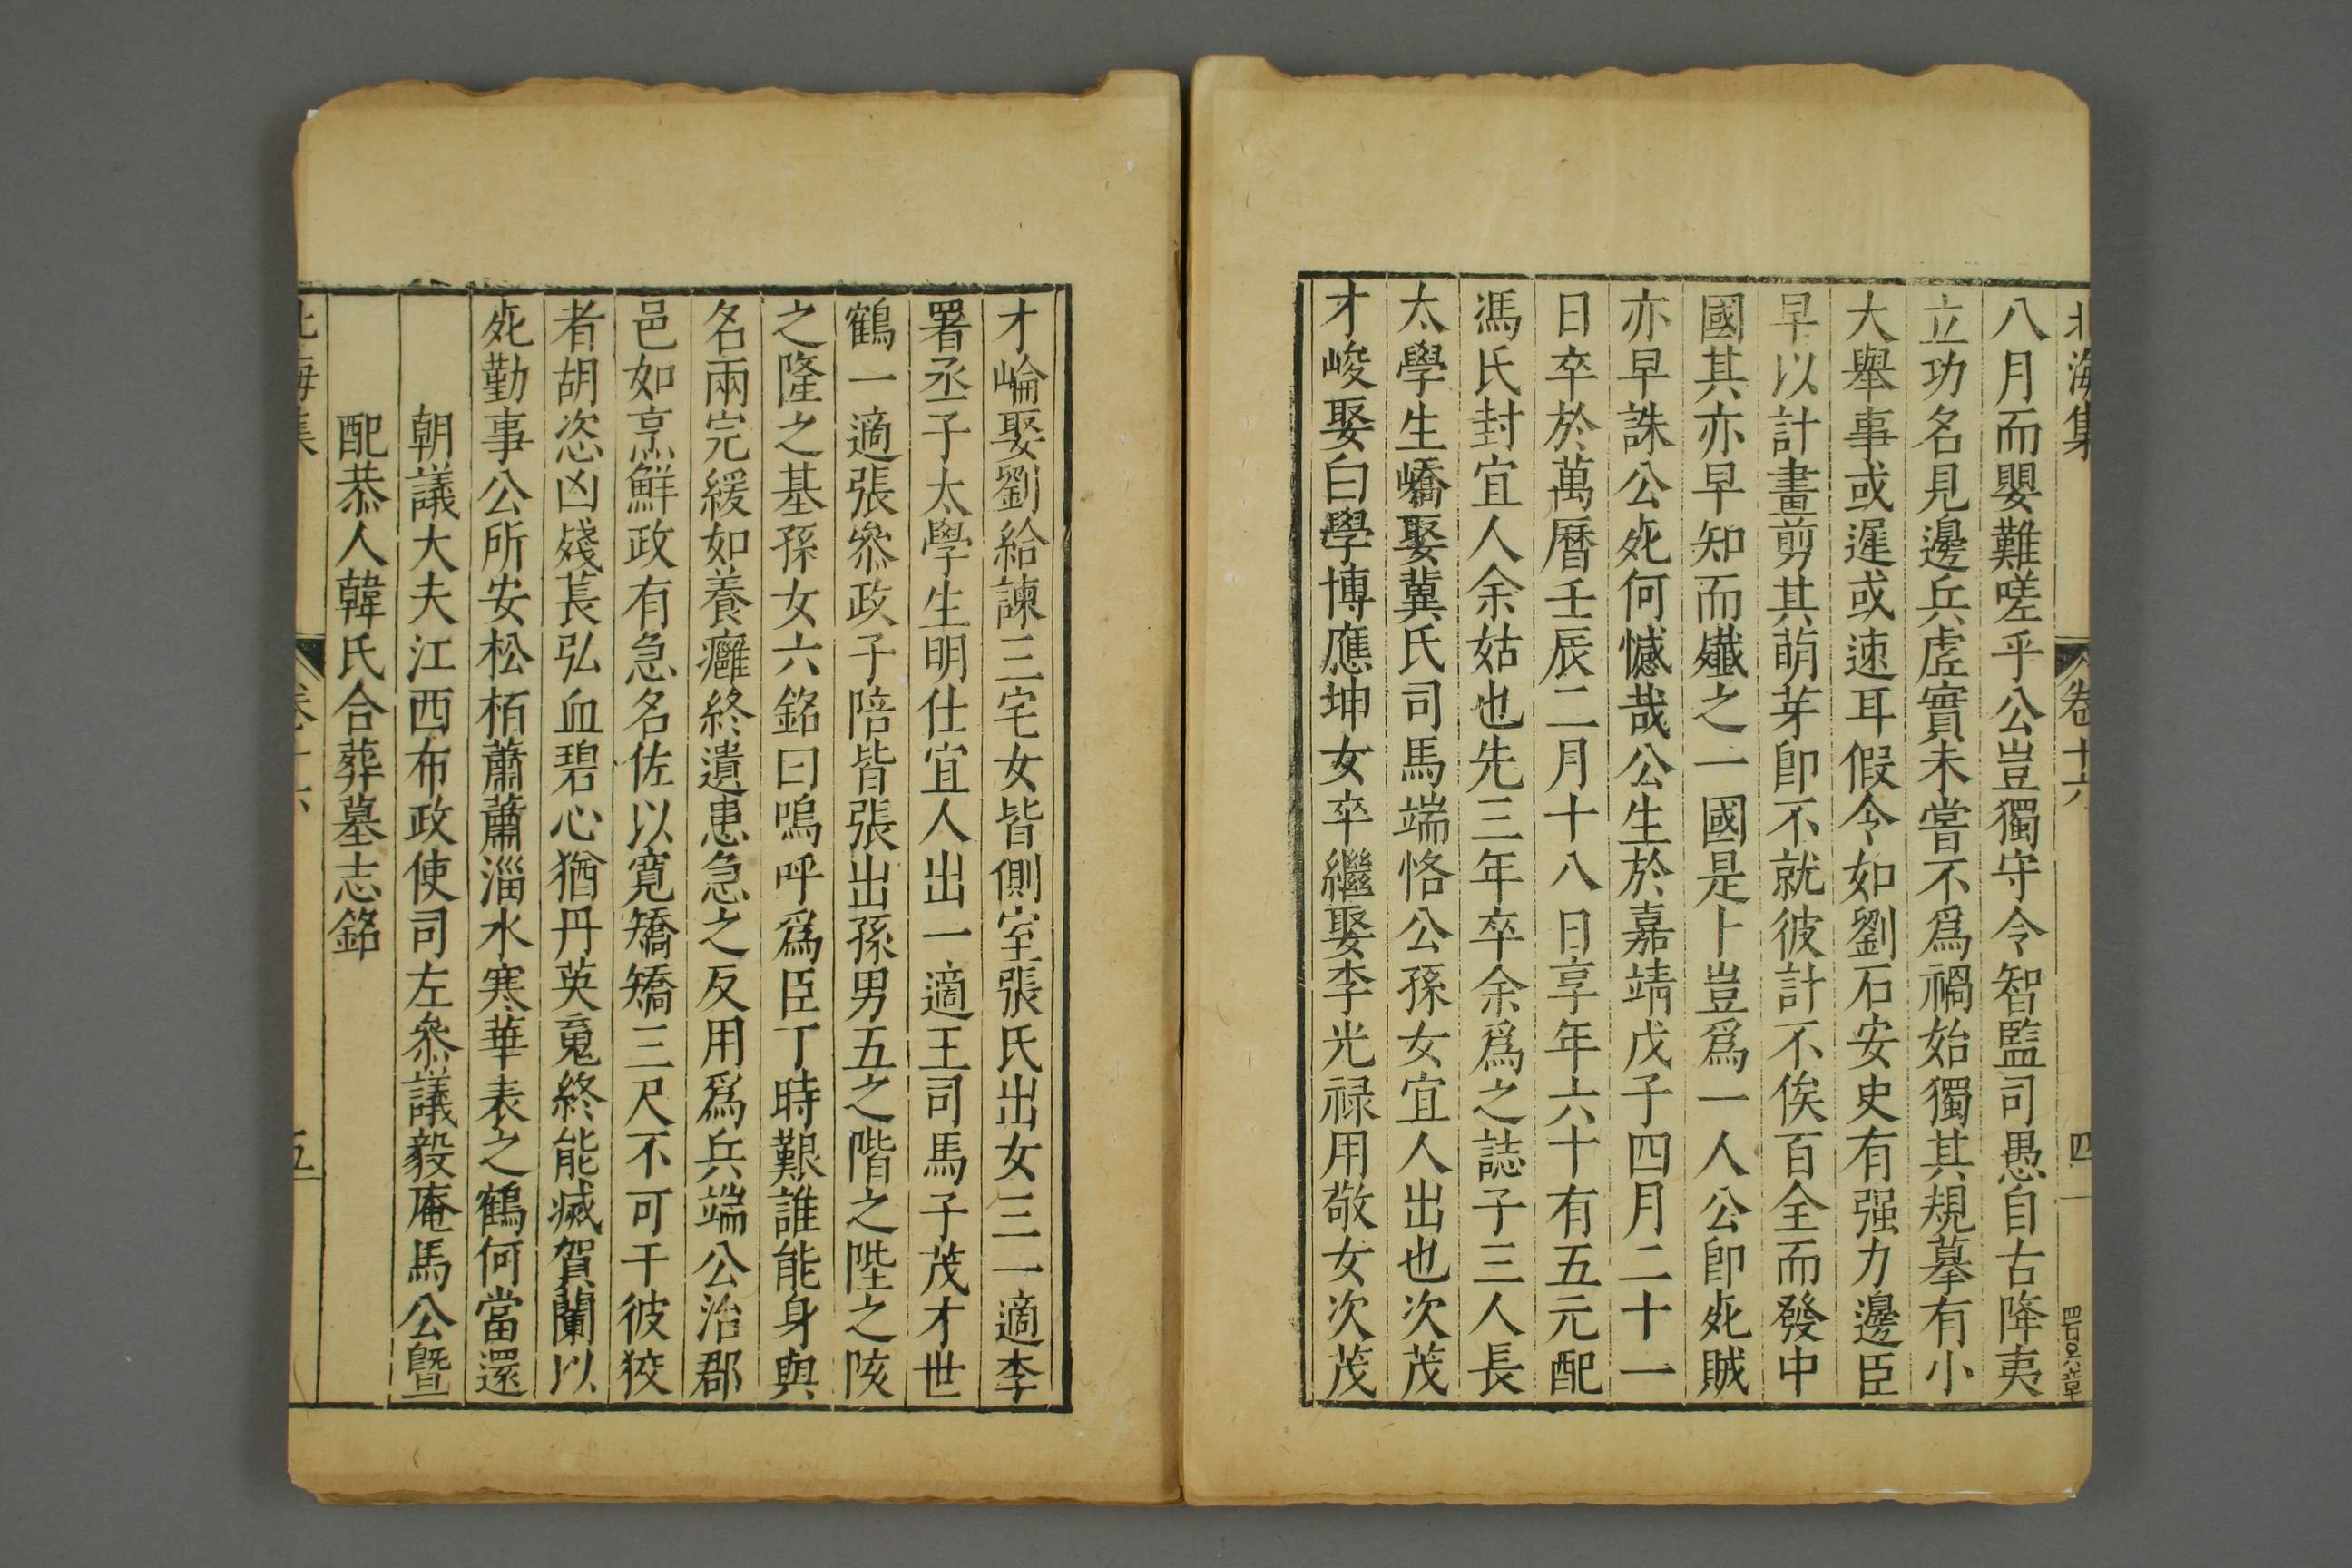 北海集 卷十六 四
八月而嬰難嗟乎公豈獨守令智監司愚自古降夷
立功名見邊兵虛實未嘗不爲禍始獨其規摹有小
大舉事或遲或速耳假令如劉石安史有强力邊臣
早以計畫剪其萌芽卽不就彼計不俟百全而發中
國其亦早知而殲之一國是卜豈爲一人公卽死賊
亦早誅公死何憾哉公生於嘉靖戊子四月二十一
日卒於萬曆壬辰二月十八日享年六十有五元配
馮氏封宜人余姑也先三年卒余爲之誌子三人長
太學生嶠娶冀氏司馬端恪公孫女宜人出也次茂
才峻娶白學博應坤女卒繼娶李光祿用敬女次茂
才崘娶劉給諫三宅女皆側室張氏出女三一適李
署丞子太學生明仕宜人出一適王司馬子茂才世
鶴一適張叅政子陪皆張出孫男五之階之陛之陔
之隆之基孫女六銘曰嗚呼爲臣丁時艱誰能身與
名兩完緩如養癰終遺患急之反用爲兵端公治郡
邑如烹鮮政有急名佐以寬矯矯三尺不可干彼狡
者胡恣凶殘萇弘血碧心猶丹英䰟終能滅賀蘭以
死勤事公所安松栢蕭蕭淄水寒華表之鶴何當還
朝議大夫江西布政使司左叅議毅庵馬公曁
配恭人韓氏合葬墓志銘
北海集 卷十六 五